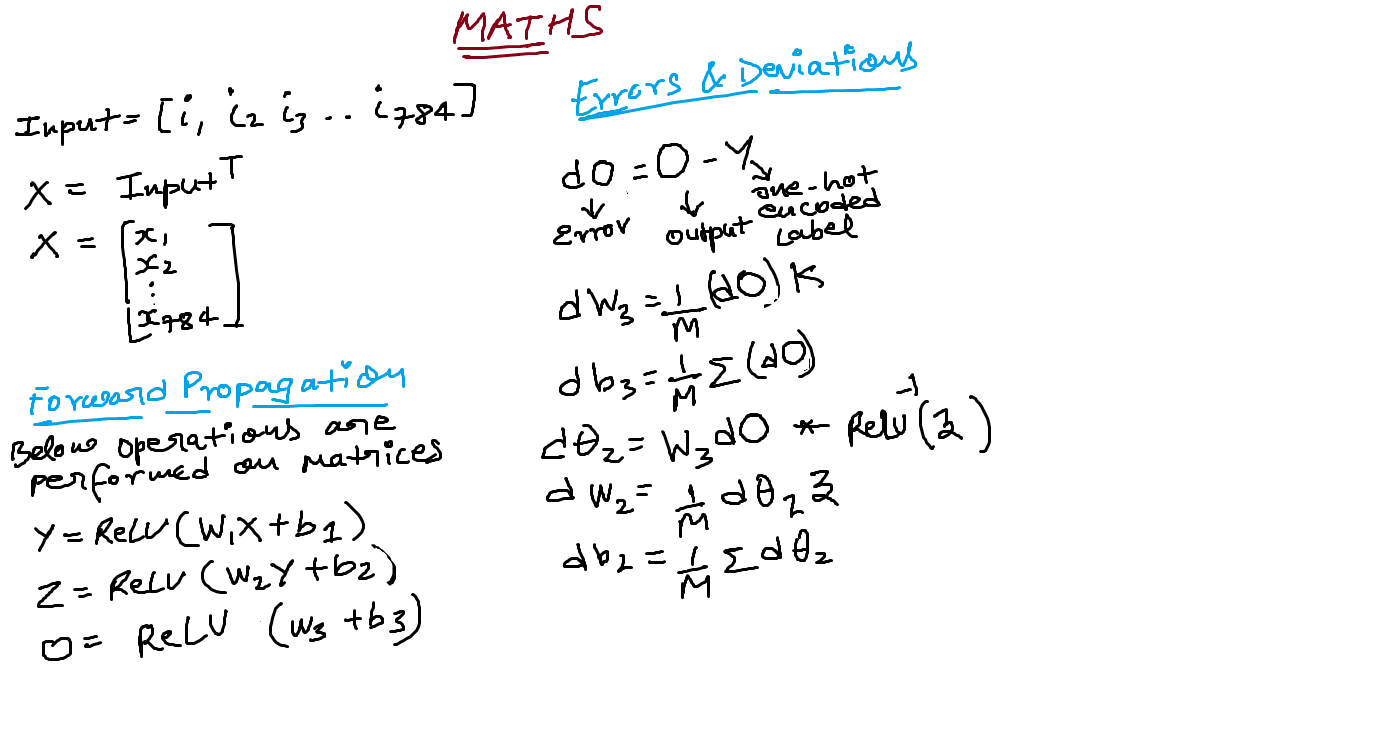 MATHS
Input = [i, i2 i3 .. i784]
X = Input^T
X = [x1
x2
⋮
x784]
Forward Propagation
Below operations are
performed on matrices
Y = ReLU(W1X + b1)
Z = ReLU (W2Y + b2)
O = ReLU (W3 + b3)
Errors & Deviations
dO = O - Y
Error
output
one-hot
encoded
Label
dW3 = 1/M (dO) K
db3 = 1/M Σ (dO)
dθ2 = W3 dO * ReLU^-1 (Z)
dW2 = 1/M dθ2 Z
db2 = 1/M Σ dθ2